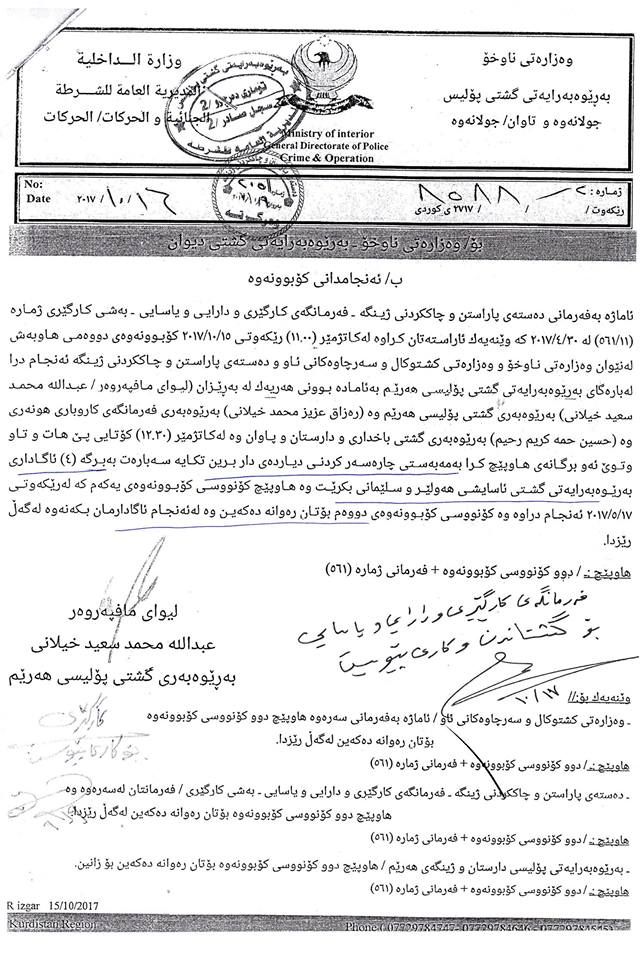 وەزارەتی ناوخۆ
بەڕێوەبەرایەتی گشتی پۆلیس
جولانەوە و تاوان/ جولانەوە
وزارة الـداخلية
المديرية العامة للشرطة
الجنائية و الحركات/ الحركات
Ministry of interior
General Directorate of Police
Crime & Operation
ژمارە :
٨٥٨٨
رێکەوت/ / / ٢٧١٧ ی کوردی
No:
Date ٢٠١٧ / ١٠ / ١٦
بۆ/ وەزارەتی ناوخۆ ـ بەڕێوەبەرایەتی گشتی دیوان
ب/ ئەنجامدانی کۆبوونەوە
ئاماژە بەفەرمانی دەستەی پاراستن و چاککردنی ژینگە ـ فەرمانگەی کارگێری و دارایی و یاسایی ـ بەشی کارگێری ژمارە
(٥٦١/١١) لە ٢٠١٧/٤/٣٠ کە وێنەیەك ئاراستەتان کراوە لەکاتژمێر (١١.٠٠) رێکەوتی ٢٠١٧/١٠/١٥ کۆبوونەوەی دووەمی هاوبەش
لەنێوان وەزارەتی ناوخۆ و وەزارەتی کشتوکال و سەرچاوەکانی ئاو و دەستەی پاراستن و چاککردنی ژینگە ئەنجام درا
لەبارەگای بەڕێوەبەرایەتی گشتی پۆلیسی هەرێم بەئامادە بوونی هەریەك لە بەڕێزان (لیوای مافپەروەر / عبداللە محمد
سعید خیلانی) بەڕێوەبەری گشتی پۆلیسی هەرێم وە (رەزاق عزیز محمد خیلانی) بەڕێوەبەری فەرمانگەی کاروباری هونەری
وە (حسین حمە کریم رحیم) بەڕێوەبەری گشتی باخداری و دارستان و پاوان وە لەکاتژمێر (١٢.٣٠) کۆتایی پێ هات و تاو
وتوێ ئەو برگانەی هاوپێچ کرا بەمەبەستی چارەسەر کردنی دیاردەی دار برین تکایە سەبارەت بەبرگە (٤) ئاگاداری
بەڕێوەبەرایەتی گشتی ئاسایشی هەولێر و سلێمانی بکرێت وە هاوپێچ کۆنووسی کۆبوونەوەی یەکەم کە لەرێکەوتی
٢٠١٧/٥/١٧ ئەنجام دراوە وە کۆنووسی کۆبوونەوەی دووەم بۆتان رەوانە دەکەین وە لەئەنجام ئاگادارمان بکەنەوە لەگەڵ
رێزدا.
هاوپێچ :ـ / دوو کۆنووسی کۆبوونەوە + فەرمانی ژمارە (٥٦١)
فەرمانگەی کارگێری و دارایی و یاسایی
بۆ گشتاندن و کاری پێویست
١٠/١٧
لیوای مافپەروەر
عبداللە محمد سعید خیلانی
بەڕێوەبەری گشتی پۆلیسی هەرێم
کارگێری
بۆ کاری پێویست
وێنەیەك بۆ://
ـ وەزارەتی کشتوکال و سەرچاوەکانی ئاو / ئاماژە بەفەرمانی سەرەوە هاوپێچ دوو کۆنووسی کۆبوونەوە
بۆتان رەوانە دەکەین لەگەڵ رێزدا.
هاوپێچ :ـ / دوو کۆنووسی کۆبوونەوە + فەرمانی ژمارە (٥٦١)
ـ دەستەی پاراستن و چاککردنی ژینگە ـ فەرمانگەی کارگێری و دارایی و یاسایی ـ بەشی کارگێری / فەرمانتان لەسەرەوە وە
هاوپێچ دوو کۆنووسی کۆبوونەوە بۆتان رەوانە دەکەین لەگەڵ رێزدا.
هاوپێچ :ـ / دوو کۆنووسی کۆبوونەوە + فەرمانی ژمارە (٥٦١)
ـ بەڕێوەبەرایەتی پۆلیسی دارستان و ژینگەی هەرێم / هاوپێچ دوو کۆنووسی کۆبوونەوە بۆتان رەوانە دەکەین بۆ زانین.
هاوپێچ :ـ / دوو کۆنووسی کۆبوونەوە + فەرمانی ژمارە (٥٦١)
R izgar 15/10/2017
Kurdistan Region
Phone ( 07729784747- 07729784646 - 07729784545)